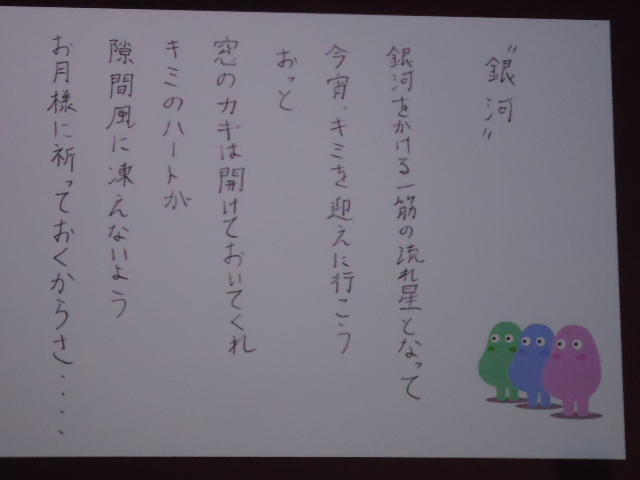 "銀河"
銀河をかける一筋の流れ星となって
今宵、キミを迎えに行こう
おっと
窓のカギは開けておいてくれ
キミのハートが
隙間風に凍えないよう
お月様に祈っておくからさ・・・・